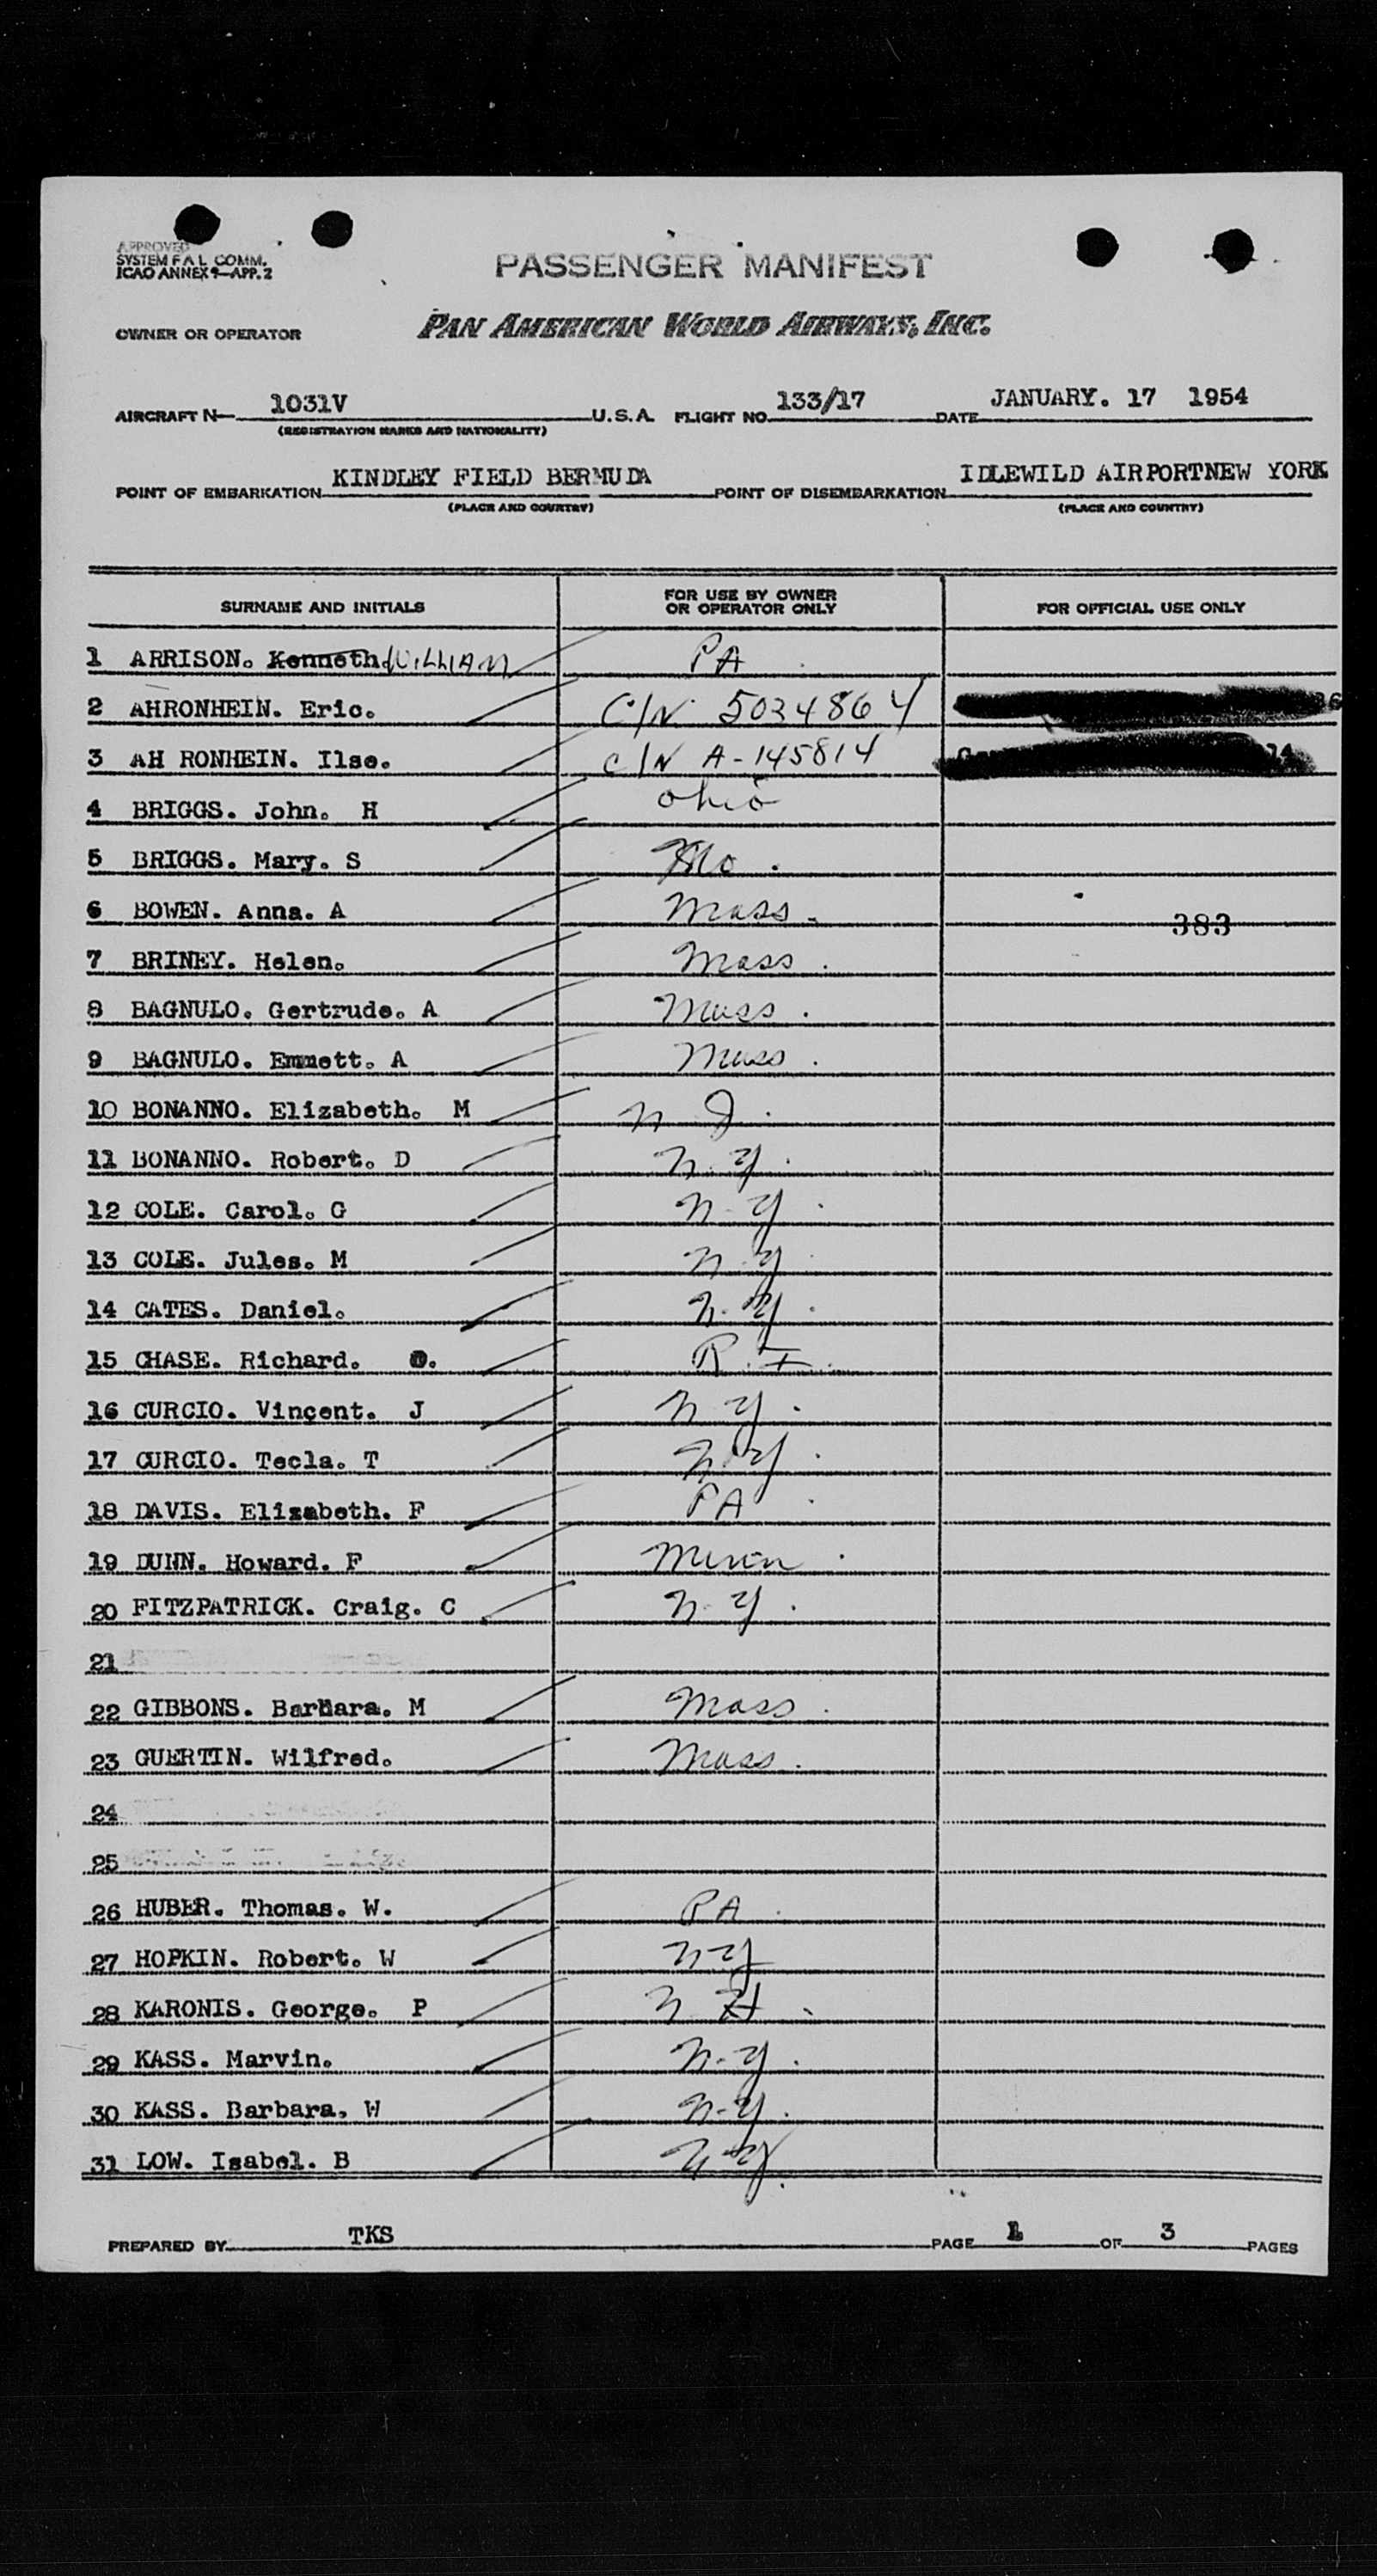 APPROVED
SYSTEM F A L COMM.
ICAO ANNEX 9—APP. 2
PASSENGER MANIFEST
OWNER OR OPERATOR PAN AMERICAN WORLD AIRWAYS, INC.
AIRCRAFT N— 1031V U.S.A. FLIGHT NO. 133/17 DATE JANUARY. 17 1954
(REGISTRATION MARKS AND NATIONALITY)
POINT OF EMBARKATION KINDLEY FIELD BERMUDA POINT OF DISEMBARKATION IDLEWILD AIRPORTNEW YORK
(PLACE AND COUNTRY) (PLACE AND COUNTRY)
SURNAME AND INITIALS FOR USE BY OWNER OR OPERATOR ONLY FOR OFFICIAL USE ONLY
1 ARRISON. Kenneth WILLIAM PA
2 AHRONHEIN. Eric. C/N 5024864
3 AH RONHEIN. Ilse. C/N A-145814
4 BRIGGS. John. H Ohio
5 BRIGGS. Mary. S Mo.
6 BOWEN. Anna. A Mass.
383
7 BRINEY. Helen. Mass.
8 BAGNULO. Gertrude. A Mass.
9 BAGNULO. Emmett. A Mass.
10 BONANNO. Elizabeth. M N J.
11 BONANNO. Robert. D N.Y.
12 COLE. Carol. G N.Y.
13 COLE. Jules. M N.Y.
14 CATES. Daniel. N.Y.
15 CHASE. Richard. R.I.
16 CURCIO. Vincent. J N Y.
17 CURCIO. Tecla. T N.Y.
18 DAVIS. Elizabeth. F PA
19 DUNN. Howard. F Minn.
20 FITZPATRICK. Craig. C N.Y.
21
22 GIBBONS. Barbara. M Mass.
23 GUERTIN. Wilfred. Mass.
24
25
26 HUBER. Thomas. W. PA
27 HOPKIN. Robert. W N Y
28 KARONIS. George. P N H.
29 KASS. Marvin. N.Y.
30 KASS. Barbara. W N.Y.
31 LOW. Isabel. B N.Y.
PREPARED BY TKS PAGE 1 OF 3 PAGES